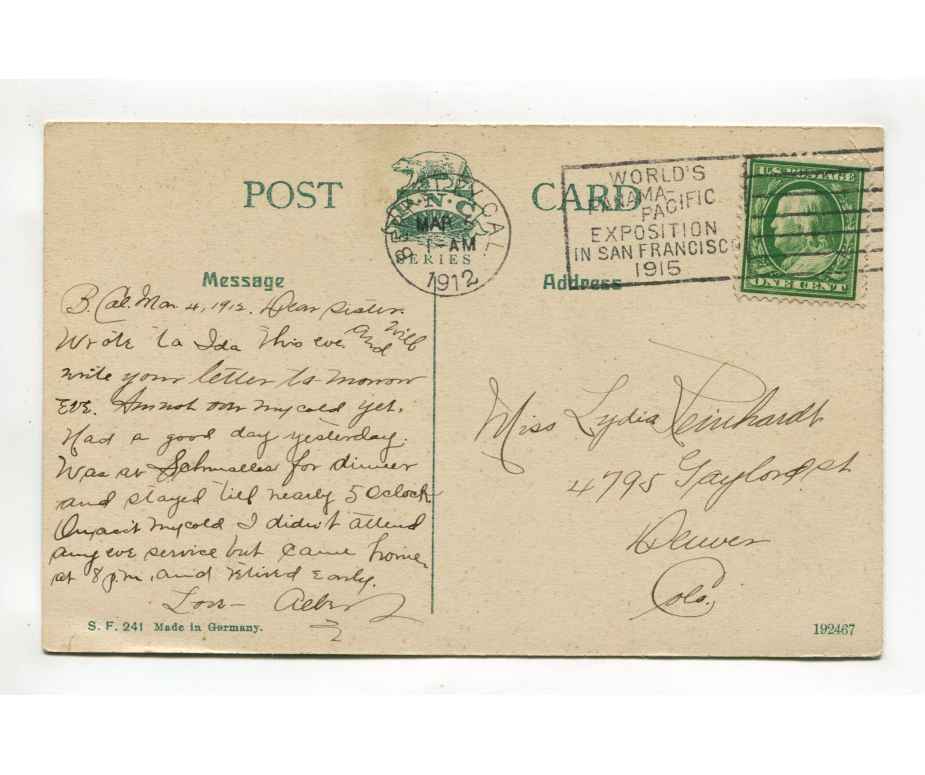 POST CARD
P. N. C.
SERIES
BERKELEY, CAL.
MAR
1-AM
1912
WORLD'S
PANAMA-
PACIFIC
EXPOSITION
IN SAN FRANCISCO
1915
U.S. POSTAGE
ONE CENT
Message
Address
B. Cal. Mar. 4, 1912. Dear Sister.
Wrote to Ida this eve. and will
write your letter to morrow
eve. Am not over my cold yet.
Had a good day yesterday.
Was at for dinner
and stayed till nearly 5 Oclock
On acct my cold I didn't attend
any eve service but came home
at 8 p.m. and retired early.
Love
Miss Lydia Reinhardt
4795 Gaylord St
Denver
Colo.
S. F. 241 Made in Germany.
192467